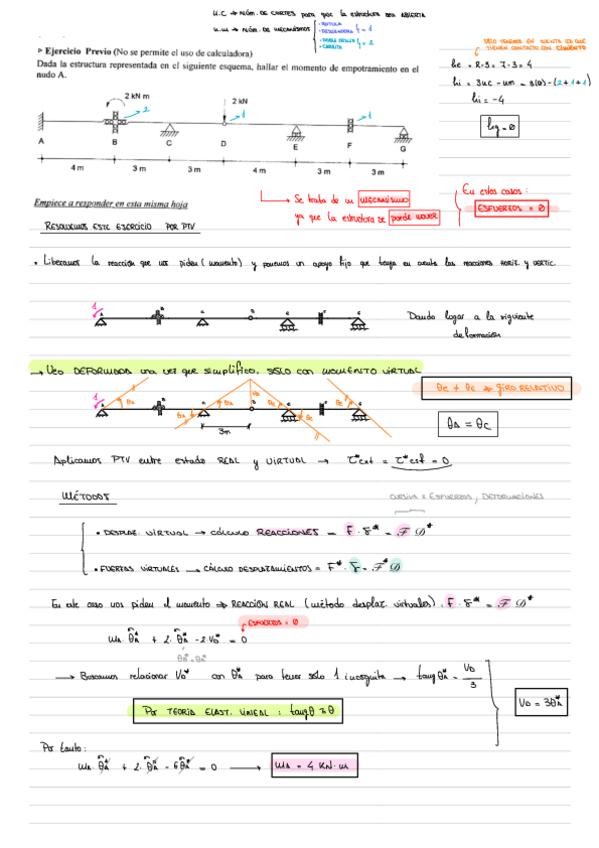 U.C → NÚM. DE CORTES para que la estructura sea ABIERTA
U.M → NÚM. DE MECANISMOS
· RÓTULA
· DESLIZADERA
ℓ = 1
· DOBLE DESLIZ
ℓ = 2
SÓLO TENEMOS EN CUENTA LOS QUE
TIENEN CONTACTO CON CIMIENTO
▷ Ejercicio Previo (No se permite el uso de calculadora)
Dada la estructura representada en el siguiente esquema, hallar el momento de empotramiento en el
nudo A.
he = R-3 = 7-3 = 4
hi = 3uc - um = 3(0) - (2+1+1)
hi = -4
hg = 0
2 kN m
2
2 kN
1
1
A B C D E F G
4 m 3 m 3 m 4 m 3 m 3 m
Empiece a responder en esta misma hoja
RESOLVEMOS ESTE EJERCICIO POR PTV
Se trata de un MECANISMO
ya que la estructura se puede mover
En estos casos:
ESFUERZOS = 0
• Liberamos la reacción que nos piden (momento) y ponemos un apoyo fijo que tenga en cuenta las reacciones HORIZ y VERTIC.
1
Dando lugar a la siguiente
deformación
→ Veo DEFORMADA una vez que simplifico. SÓLO CON MOMENTO VIRTUAL
1
3m
θc + θc → GIRO RELATIVO
θA = θc
Aplicamos PTV entre estado REAL y VIRTUAL → τ*ext = τ*esf = 0
MÉTODOS
CURSIVA = ESFUERZOS, DEFORMACIONES
• DESPLAZ. VIRTUAL → CÁLCULO REACCIONES = F · δ* = F D*
• FUERZAS VIRTUALES → CÁLCULO DESPLAZAMIENTOS = F* · δ = F* D
En este caso nos piden el momento → REACCIÓN REAL (método desplaz. virtuales). F · δ* = F D*
ESFUERZOS = 0
MA · θA* + 2 · θA* - 2 · VD* = 0
→ Buscamos relacionar VD* con θA* para tener sólo 1 incógnita → tang θA* = VD / 3
VD = 3θA*
Por TEORÍA ELAST. LINEAL : tang θ ≈ θ
Por tanto:
MA · θA* + 2 · θA* - 6θA* = 0 → MA = 4 KN·m